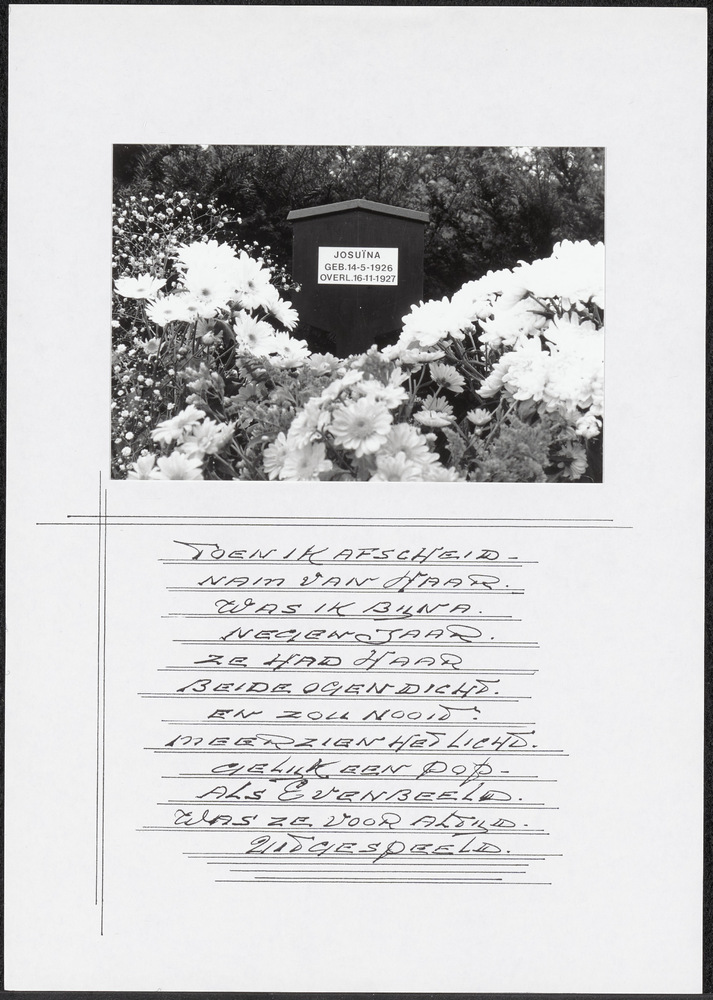 JOSUÏNA
GEB.14-5-1926
OVERL.16-11-1927
TOEN IK AFSCHEID -
NAM VAN HAAR.
WAS IK BIJNA.
NEGEN JAAR.
ZE HAD HAAR
BEIDE OGEN DICHT.
EN ZOU NOOIT:
MEER ZIEN HET LICHT.
GELIJK EEN POP -
ALS EVENBEELD.
WAS ZE VOOR ALTIJD -
UITGESPEELD.